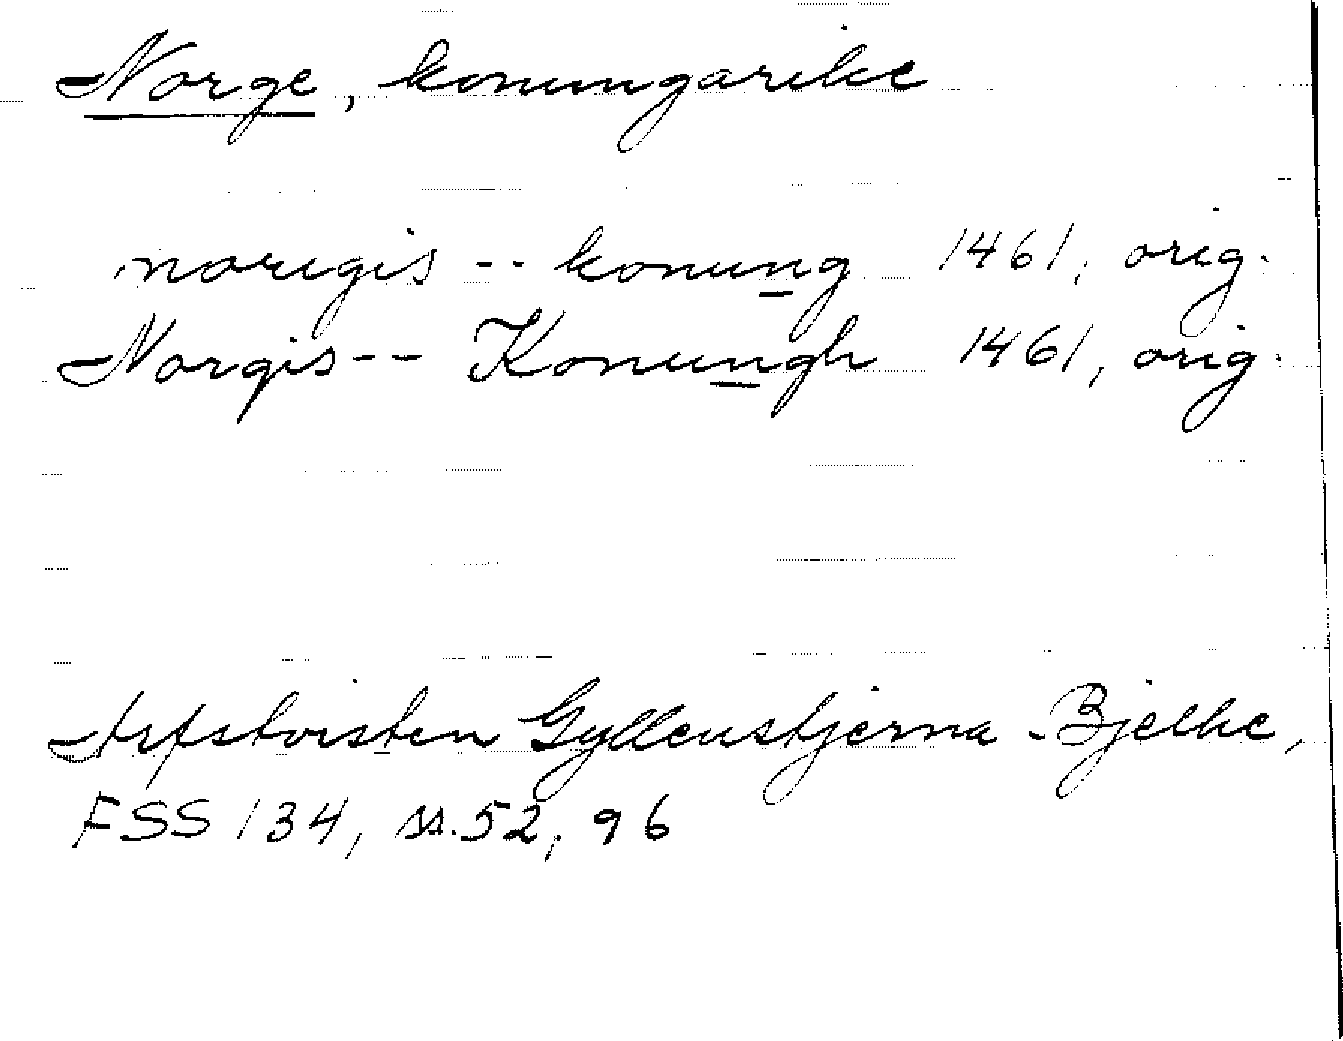 Norge, konungarike
norigis -- konung 1461, orig.
Norgis -- Konungh 1461, orig.
Arfstvisten Gyllenstjerna - Bjelke,
FSS 134, ss. 52, 96